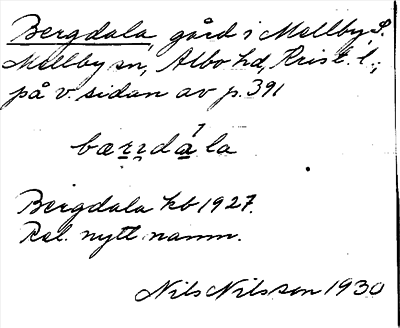 Bergdala, gård i Mellby, S.
Mellby sn, Albo hd, Krist. l.,
på v. sidan av p. 391
bærɹdála
Bergdala kb 1927.
Rel. nytt namn.
Nils Nilsson 1930